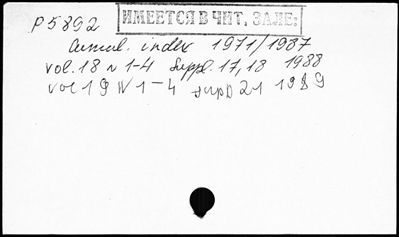 P5892
ИМЕЕТСЯ В ЧИТ. ЗАЛЕ:
Cumul. index 1971/1987
vol. 18 N 1-4 Suppl. 17, 18 1988
vol 19 N 1-4 supp 21 1989